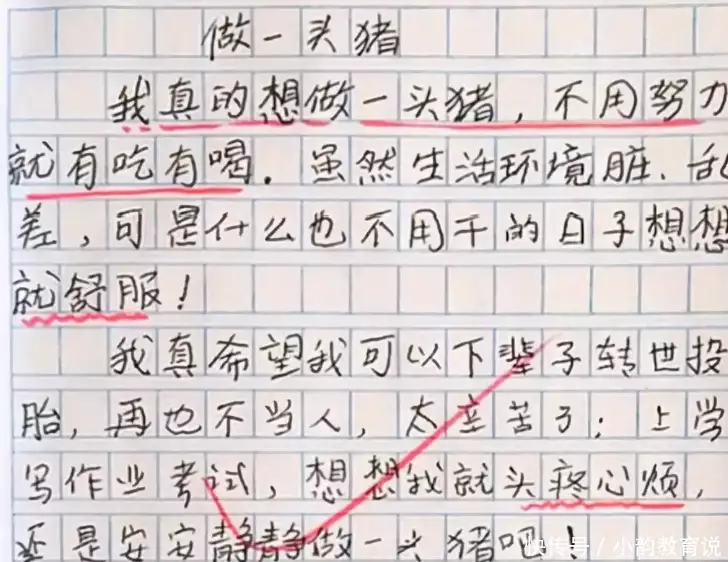 做一头猪
我真的想做一头猪，不用努力
就有吃有喝．虽然生活环境脏、乱
差，可是什么也不用干的日子想想
就舒服！
我真希望我可以下辈子转世投
胎，再也不当人，太辛苦了；上学
写作业考试，想想我就头疼心烦，
还是安安静静做一头猪吧！
快传号／小韵教育说